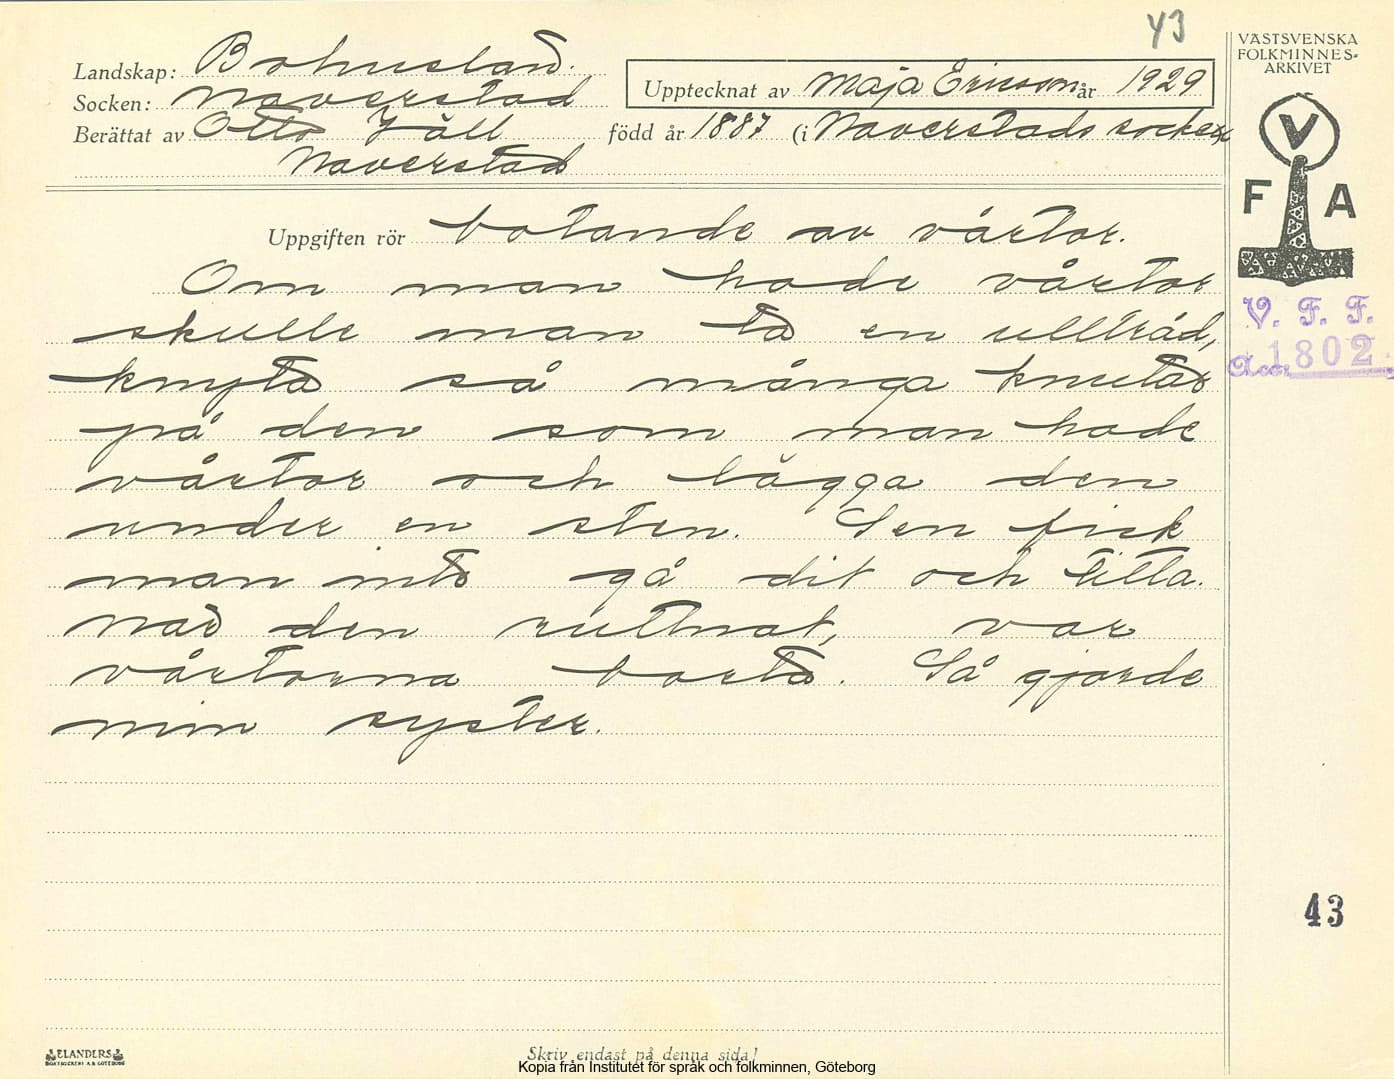 43
VÄSTSVENSKA
FOLKMINNES-
ARKIVET
Landskap: Bohuslän.
Socken: Naverstad
Upptecknat av Maja Ericson år 1929
Berättat av Otto Häll född år 1887 (i Naverstads socken
Naverstad
V
F A
Uppgiften rör botande av vårtor.
Om man hade vårtor
skulle man ta en ulltråd,
knyta så många knutar
på den som man hade
vårtor och lägga den
under en sten. Sen fick
man inte gå dit och titta.
När den ruttnat, var
vårtorna borta. Så gjorde
min syster.
V. F. F.
Acc. 1802
43
ELANDERS
BOKTRYCKERI A.B. GÖTEBORG
Skriv endast på denna sida!
Kopia från Institutet för språk och folkminnen, Göteborg